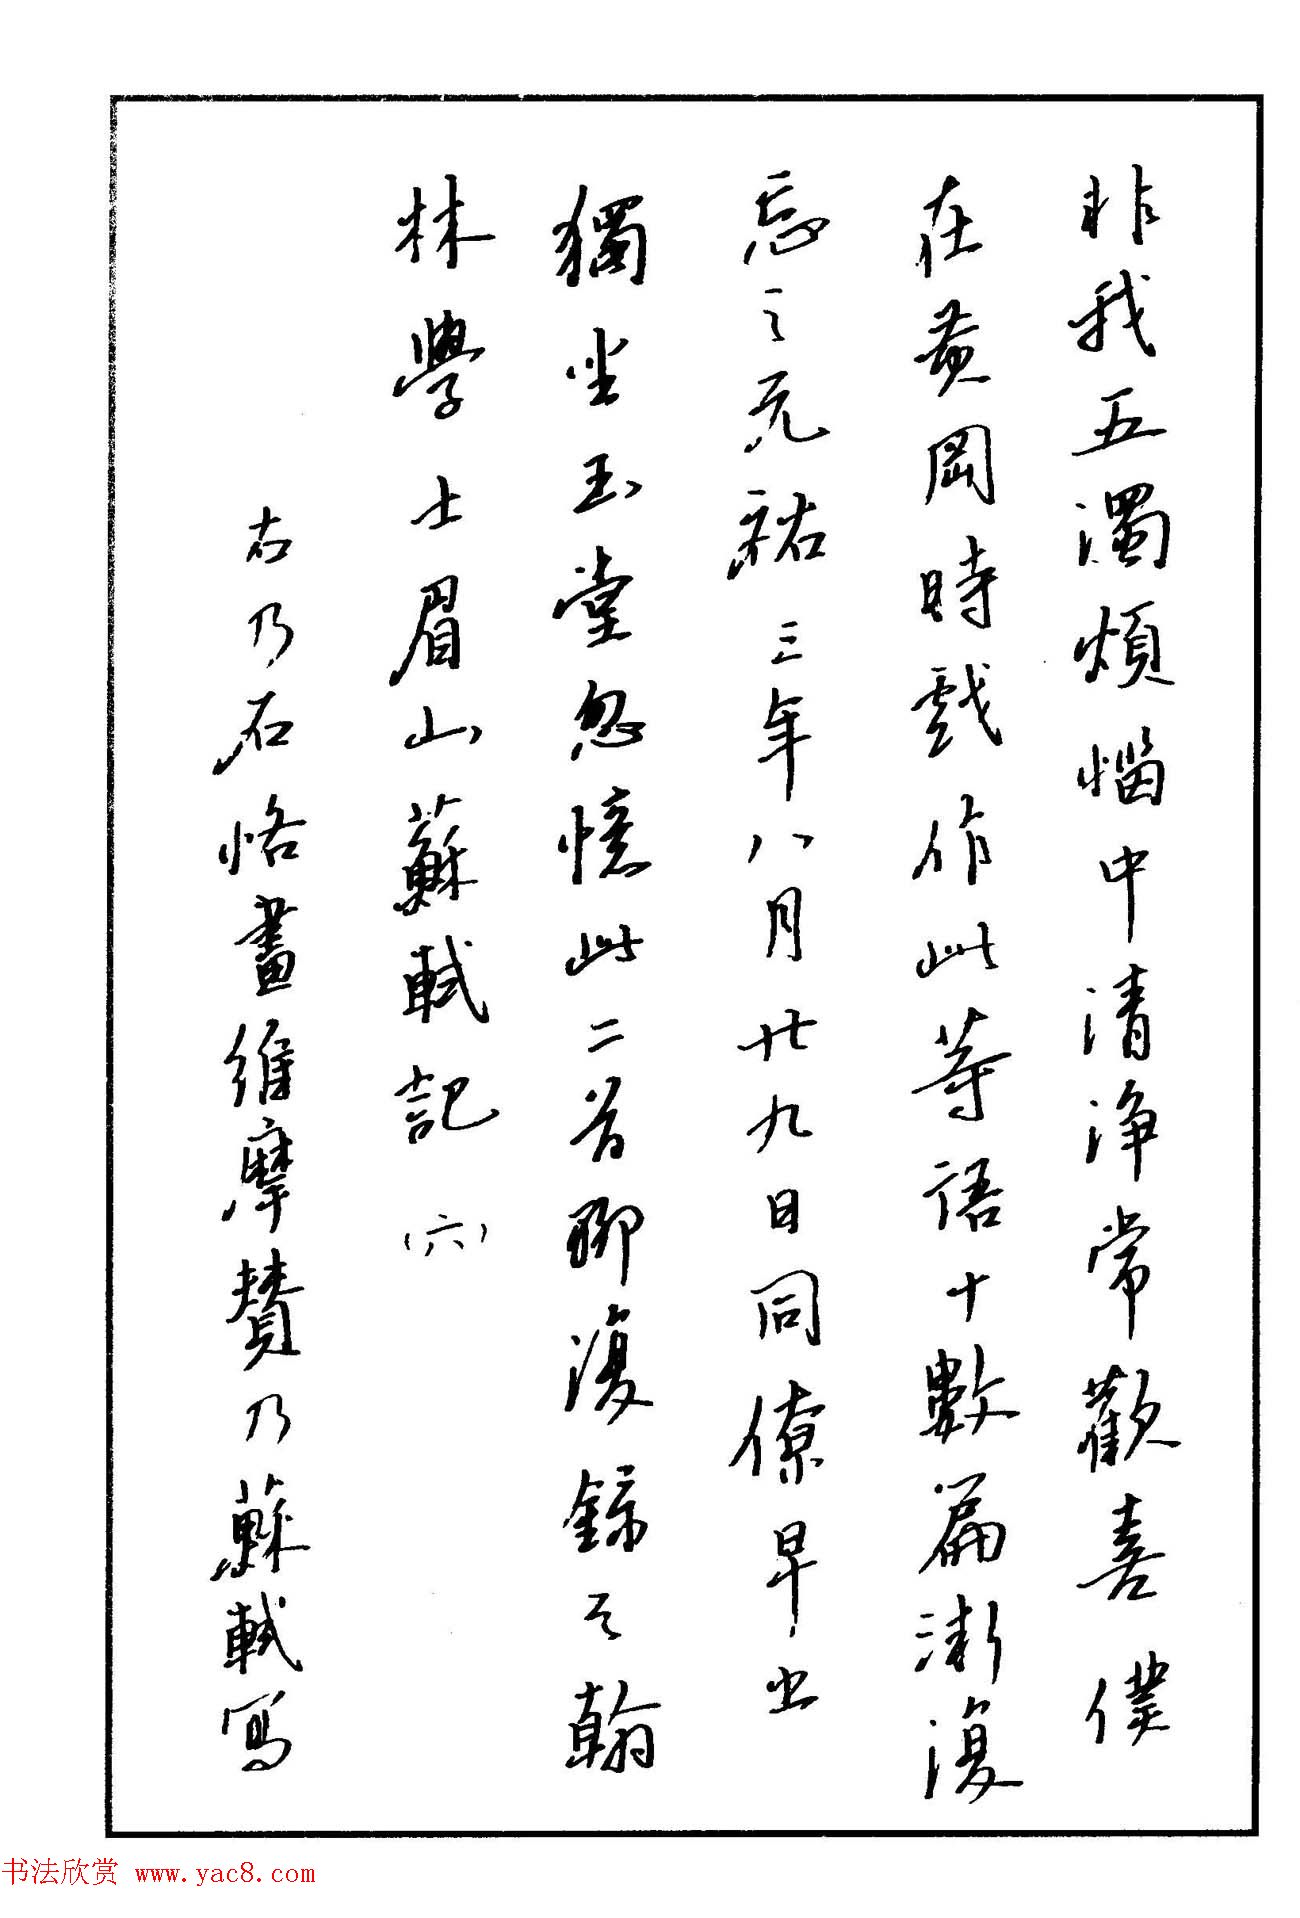 非我五濁煩惱中清淨常歡喜僕
在黄岡時戲作此等語十數篇漸復
忘之元祐三年八月廿九日同僚早出
獨坐玉堂忽憶此二首聊復錄之翰
林學士眉山蘇軾記(六)
右乃石恪畫維摩贊乃蘇軾寫
书法欣赏 www.yac8.com